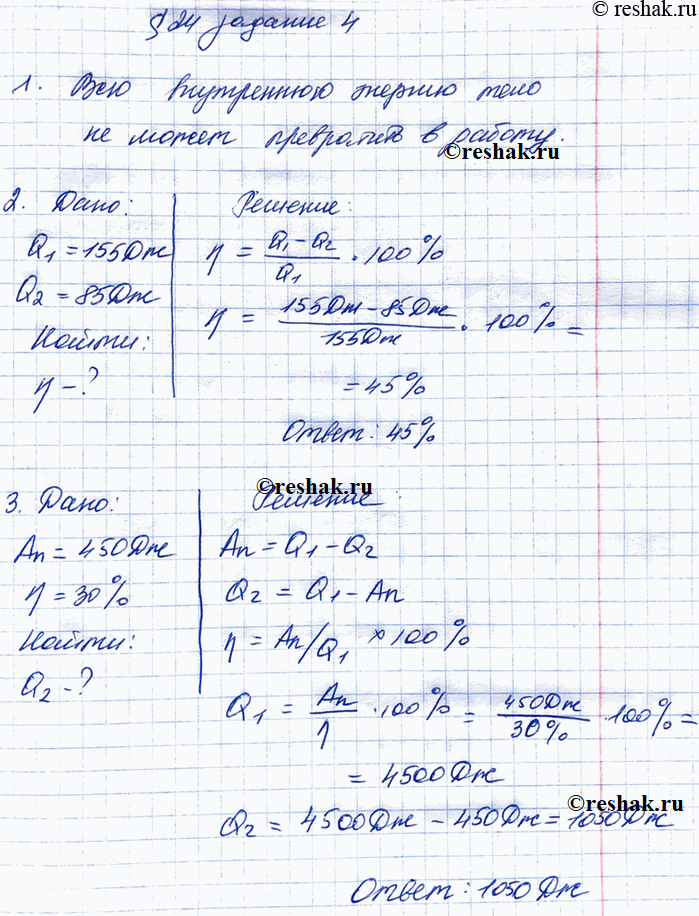 © reshak.ru
§ 24 задание 4
1. Всю внутреннюю энергию тело
не может превратить в работу.
©reshak.ru
2. Дано:
Q₁ = 155 Дж
Q₂ = 85 Дж
Найти:
η - ?
Решение:
η = (Q₁ - Q₂)/Q₁ · 100%
η = (155 Дж - 85 Дж)/155 Дж · 100% =
= 45%
Ответ: 45%
©reshak.ru
3. Дано:
Aп = 450 Дж
η = 30%
Найти:
Q₂ - ?
Решение
Aп = Q₁ - Q₂
Q₂ = Q₁ - Aп
η = Aп/Q₁ × 100%
Q₁ = Aп/η · 100% = 450 Дж/30% · 100% =
= 4500 Дж
©reshak.ru
Q₂ = 4500 Дж - 450 Дж = 1050 Дж
Ответ: 1050 Дж